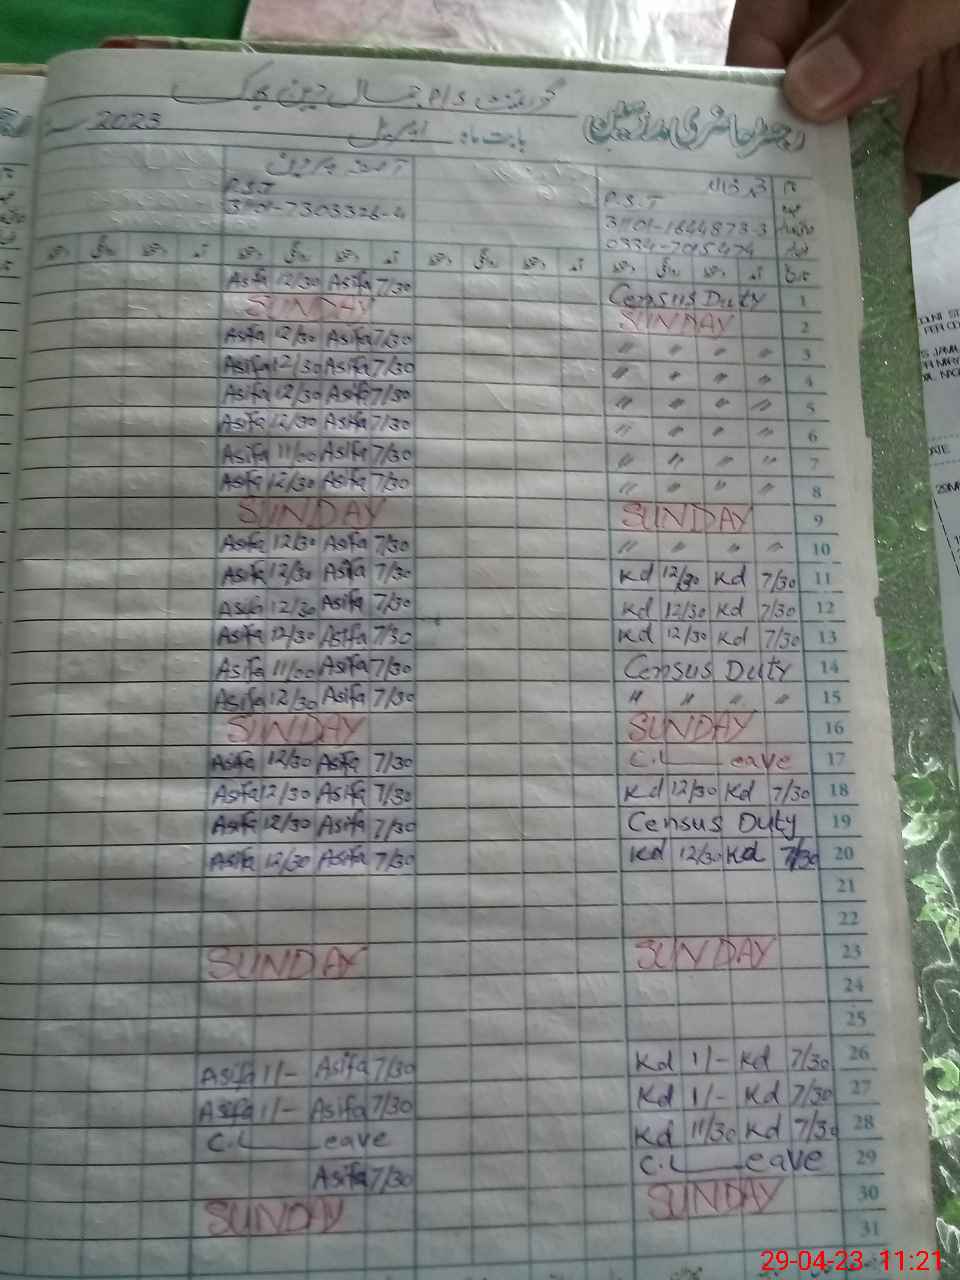 گورنمنٹ P/S جمال دین بیگ
رجسٹر حاضری مدرسین
بابت ماہ اپریل 2023
P.S.T P.S.T
31101-7303326-4 31101-1644873-3
0334-7015474
Asifa 12/30 Asifa 7/30 Census Duty 1
SUNDAY SUNDAY 2
Asifa 12/30 Asifa 7/30 〃 〃 〃 〃 3
Asifa 12/30 Asifa 7/30 〃 〃 〃 〃 4
Asifa 12/30 Asifa 7/30 〃 〃 〃 〃 5
Asifa 12/30 Asifa 7/30 〃 〃 〃 〃 6
Asifa 11/00 Asifa 7/30 〃 〃 〃 〃 7
Asifa 12/30 Asifa 7/30 〃 〃 〃 〃 8
SUNDAY SUNDAY 9
Asifa 12/30 Asifa 7/30 〃 〃 〃 〃 10
Asifa 12/30 Asifa 7/30 Kd 12/30 Kd 7/30 11
Asifa 12/30 Asifa 7/30 Kd 12/30 Kd 7/30 12
Asifa 12/30 Asifa 7/30 Kd 12/30 Kd 7/30 13
Asifa 11/00 Asifa 7/30 Census Duty 14
Asifa 12/30 Asifa 7/30 〃 〃 〃 〃 15
SUNDAY SUNDAY 16
Asifa 12/30 Asifa 7/30 C.L eave 17
Asifa 12/30 Asifa 7/30 Kd 12/30 Kd 7/30 18
Asifa 12/30 Asifa 7/30 Census Duty 19
Asifa 12/30 Asifa 7/30 Kd 12/30 Kd 7/30 20
21
22
SUNDAY SUNDAY 23
24
25
Asifa 1/- Asifa 7/30 Kd 1/- Kd 7/30 26
Asifa 1/- Asifa 7/30 Kd 1/- Kd 7/30 27
C.L eave Kd 11/30 Kd 7/30 28
Asifa 7/30 C.L eave 29
SUNDAY SUNDAY 30
31
29-04-23 11:21